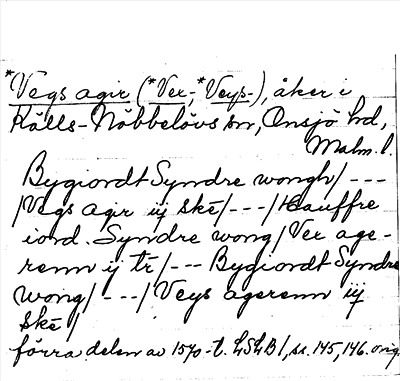 *Vegs agir (*Ver-, *Veys-), åker i
Källs-Nöbbelövs sn, Onsjö hd,
Malm. l.
Bygiordt Syndre wongh/---
/Vegs agir iij skē/---/Hauffre
iord. Syndre wong/Ver age-
renn ij tr/---Bygiordt Syndre
wong/---/Veys agerenn iij
skē/
förra delen av 1570-t. LSLB/, ss. 145, 146. orig.